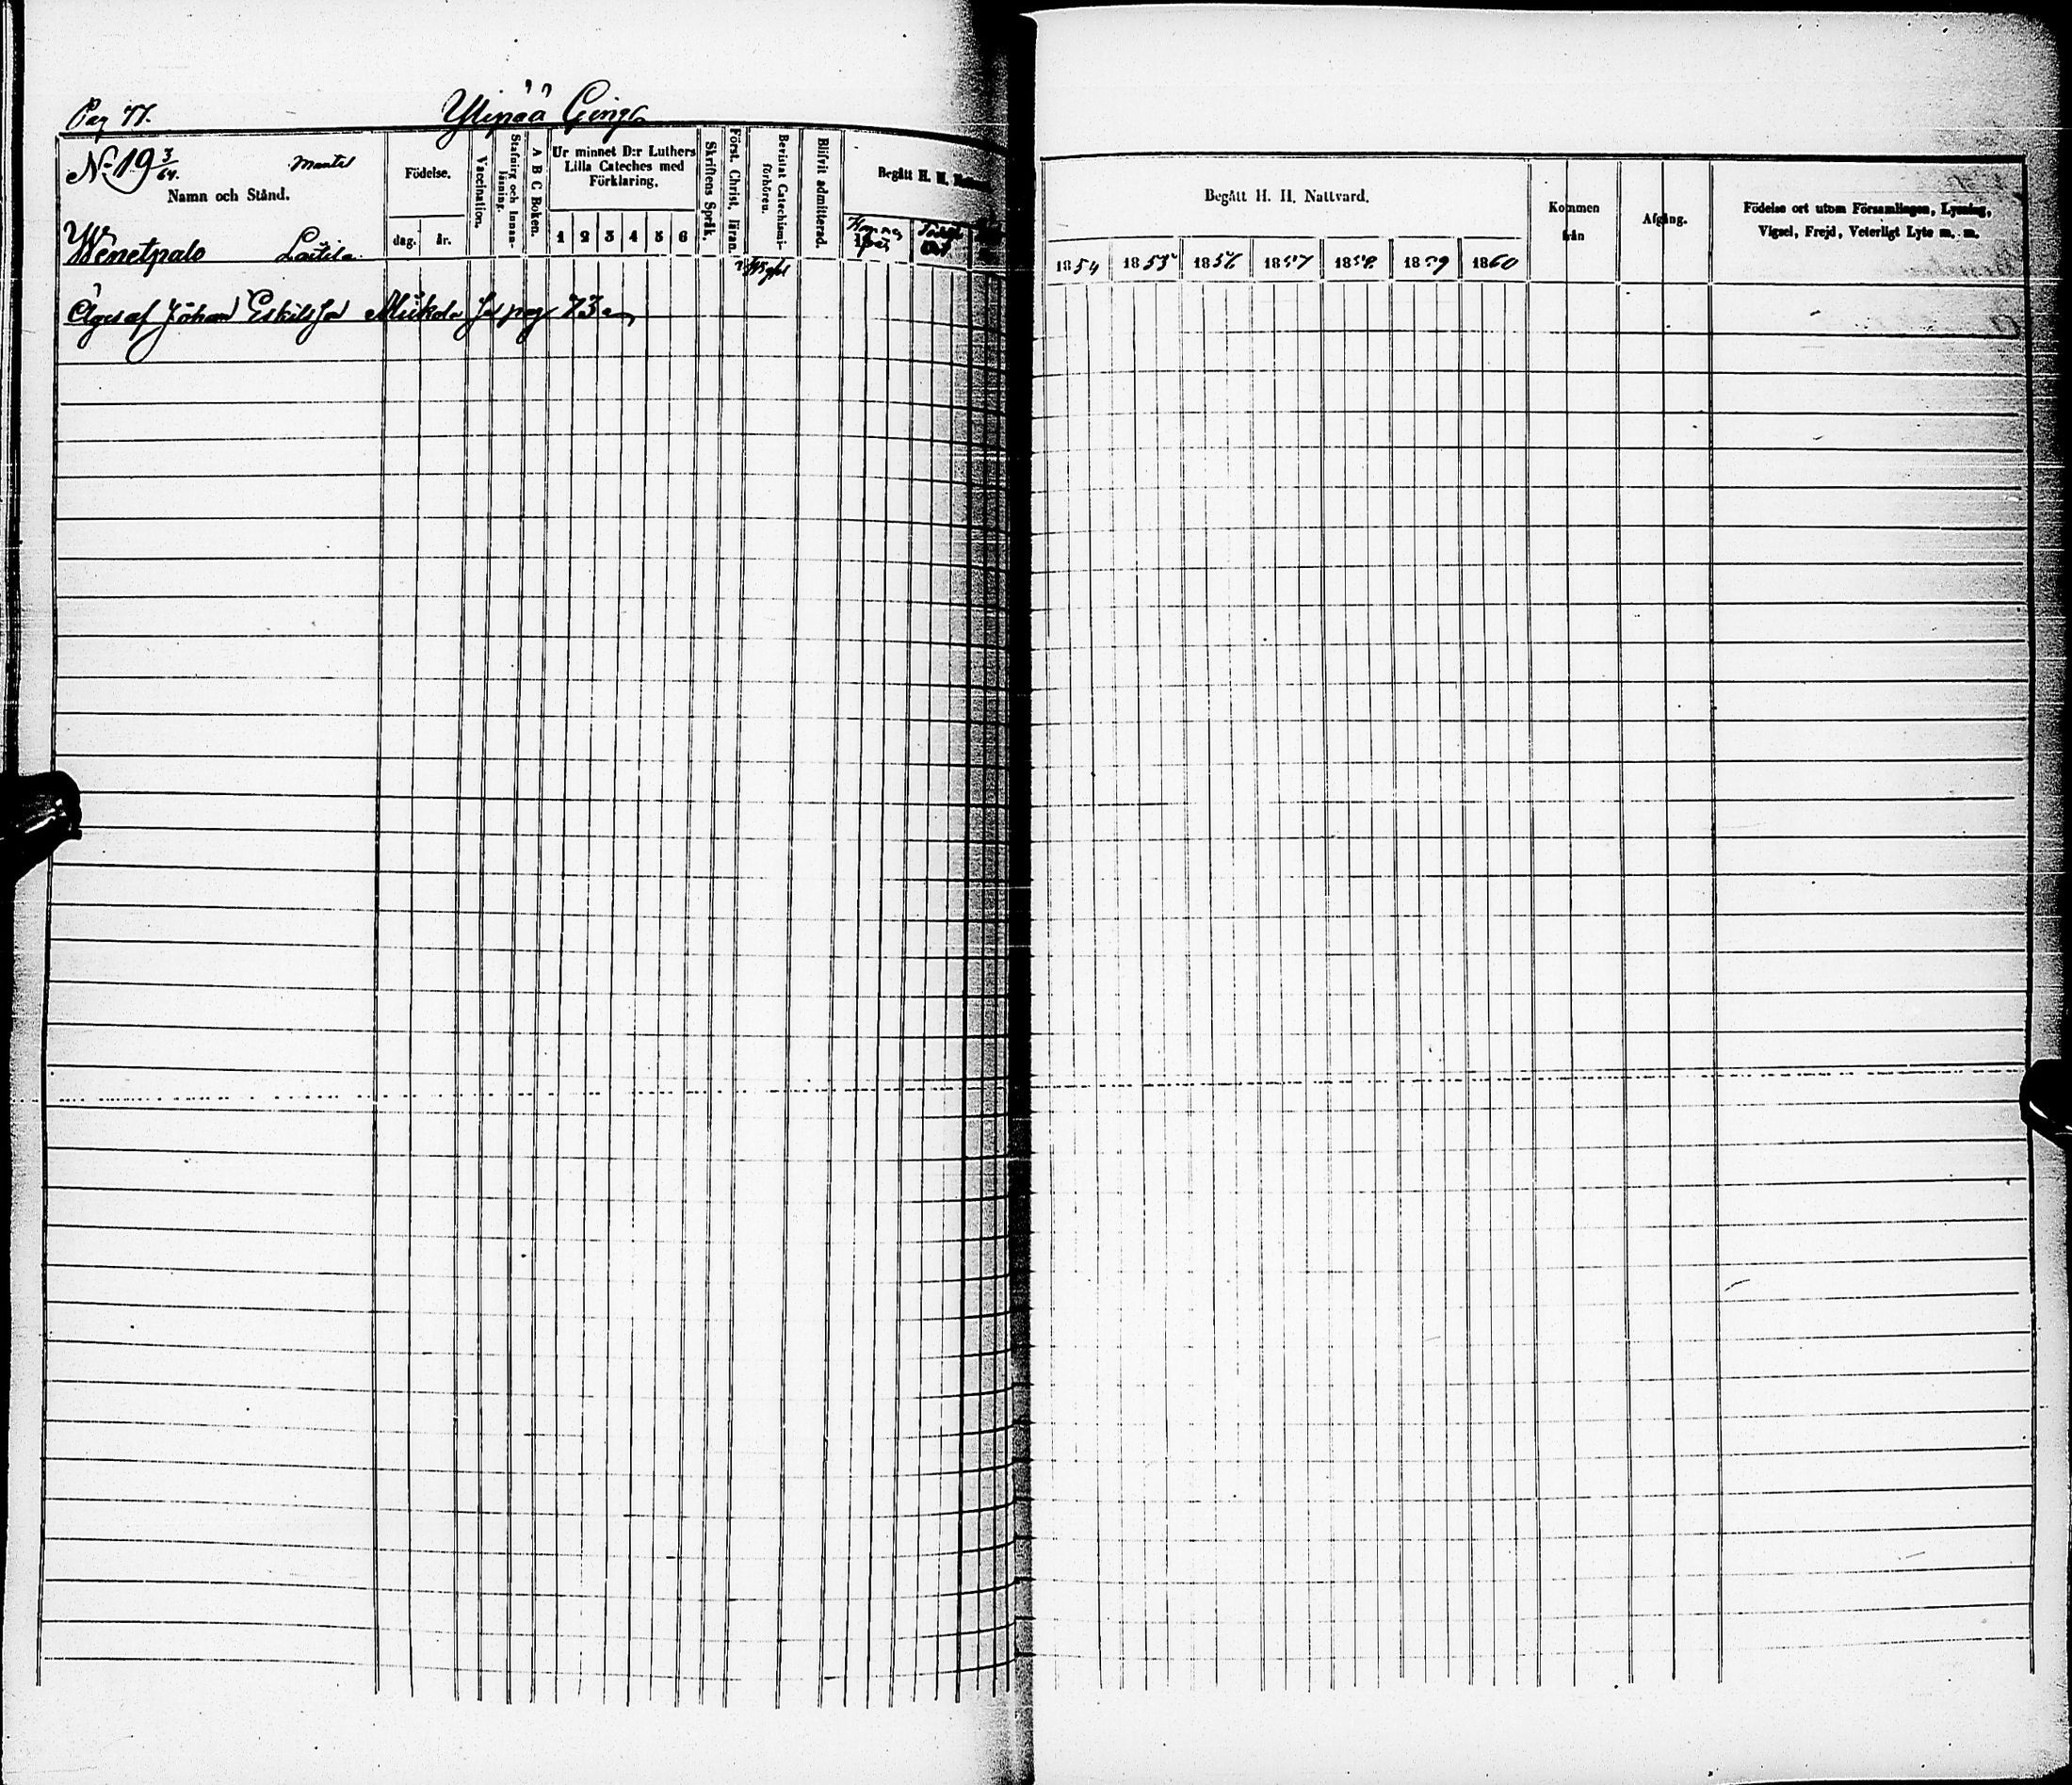 Pag 77.
Ylipää By
No 19 3/64. Mantel
Namn och Stånd.
Födelse.
dag. år.
Vaccination.
Stafning och Innanläsning.
A B C Boken.
Ur minnet D:r Luthers
Lilla Cateches med
Förklaring.
1 2 3 4 5 6
Skriftens Språk.
Först. Christ. läran.
Bevistat Catechismiförhören.
Blifvit admitterad.
Begått H. H.
Wenetpalo Laitila
Äges af Johan Eskilss Miikola pag 73
Begått H. H. Nattvard.
1854 1855 1856 1857 1858 1859 1860
Kommen
från
Afgång.
Födelse ort utom Församlingen, Lysning,
Vigsel, Frejd, Veterligt Lyte m. m.